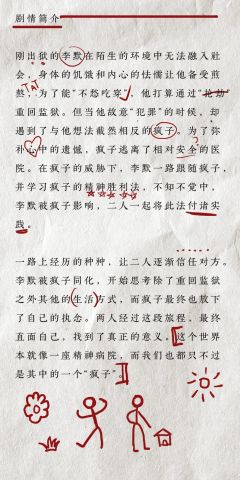 剧情简介
刚出狱的李默在陌生的环境中无法融入社
会。身体的饥饿和内心的怯懦让他备受煎
熬，为了能“不愁吃穿”，他打算通过“抢劫”
重回监狱。但当他故意“犯罪”的时候，却
遇到了与他想法截然相反的疯子。为了弥
补心中的遗憾，疯子逃离了相对安全的医
院。在疯子的威胁下，李默一路跟随疯子，
并学习疯子的精神胜利法，不知不觉中，
李默被疯子影响，二人一起将此法付诸实
践。
一路上经历的种种，让二人逐渐信任对方。
李默被疯子同化，开始思考除了重回监狱
之外其他的生活方式，而疯子最终也放下
了自己的执念。两人经过这段旅程，最终
直面自己，找到了真正的意义。这个世界
本就像一座精神病院，而我们也都只不过
是其中的一个“疯子”。